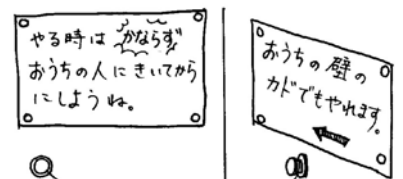 やる時は かならず
おうちの人にきいてから
にしようね。
おうちの壁の
カドでもやれます。